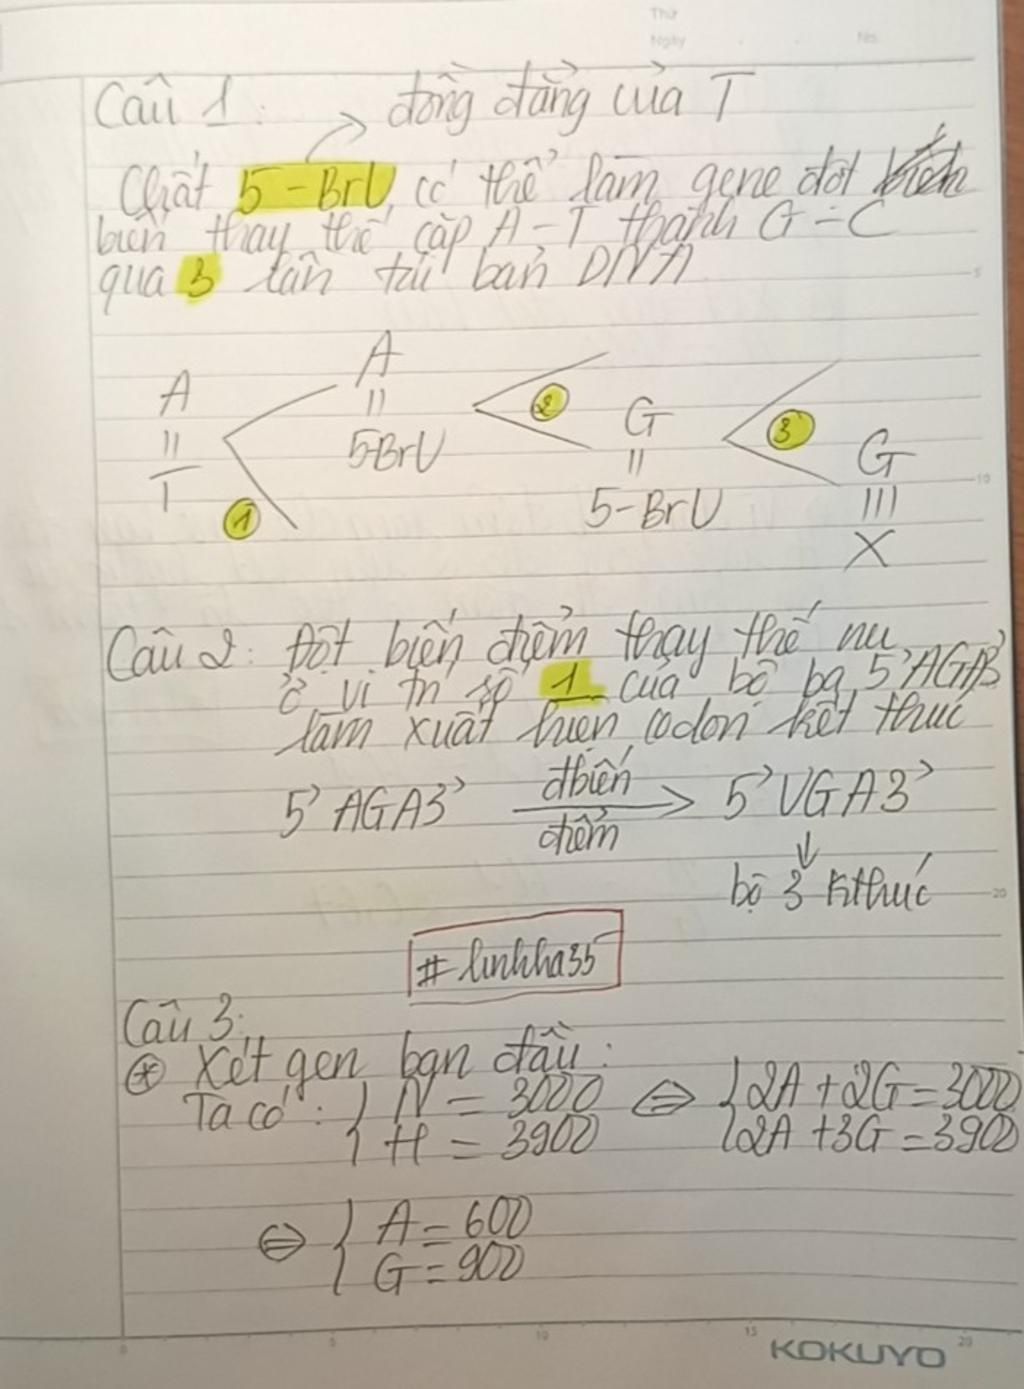 Thứ
Ngày . . No.
Câu 1: → đồng đẳng của T
Chất 5-BrU, có thể làm gene đột
biến thay thế cặp A-T thành G-C
qua 3 lần tái bản DNA
A A G G
|| || || |||
T 5-BrU 5-BrU X
1 2 3
Câu 2: Đột biến điểm thay thế nu
ở vị trí số 1 của bộ ba 5'AGA3'
làm xuất hiện codon kết thúc
5' AGA3' đbiến điểm → 5' UGA3'
↓
bộ 3 kthúc
#linhha35
Câu 3:
⊛ Xét gen ban đầu:
Ta có: { N = 3000 ⇔ { 2A + 2G = 3000
{ H = 3900 { 2A + 3G = 3900
⇔ { A = 600
{ G = 900
0 5 10 15 20
KOKUYO